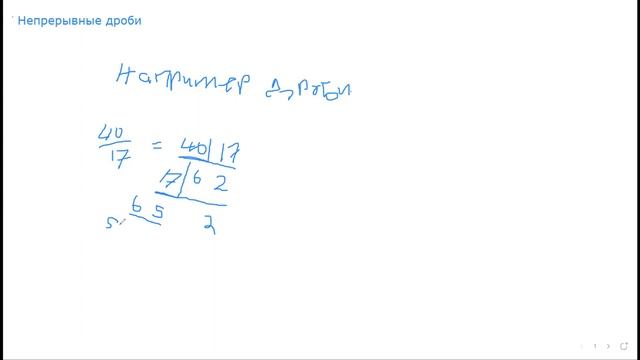 Непрерывные дроби
Например дроби
40/17 = 40 | 17
17 | 6 2
6 5 2
5
1